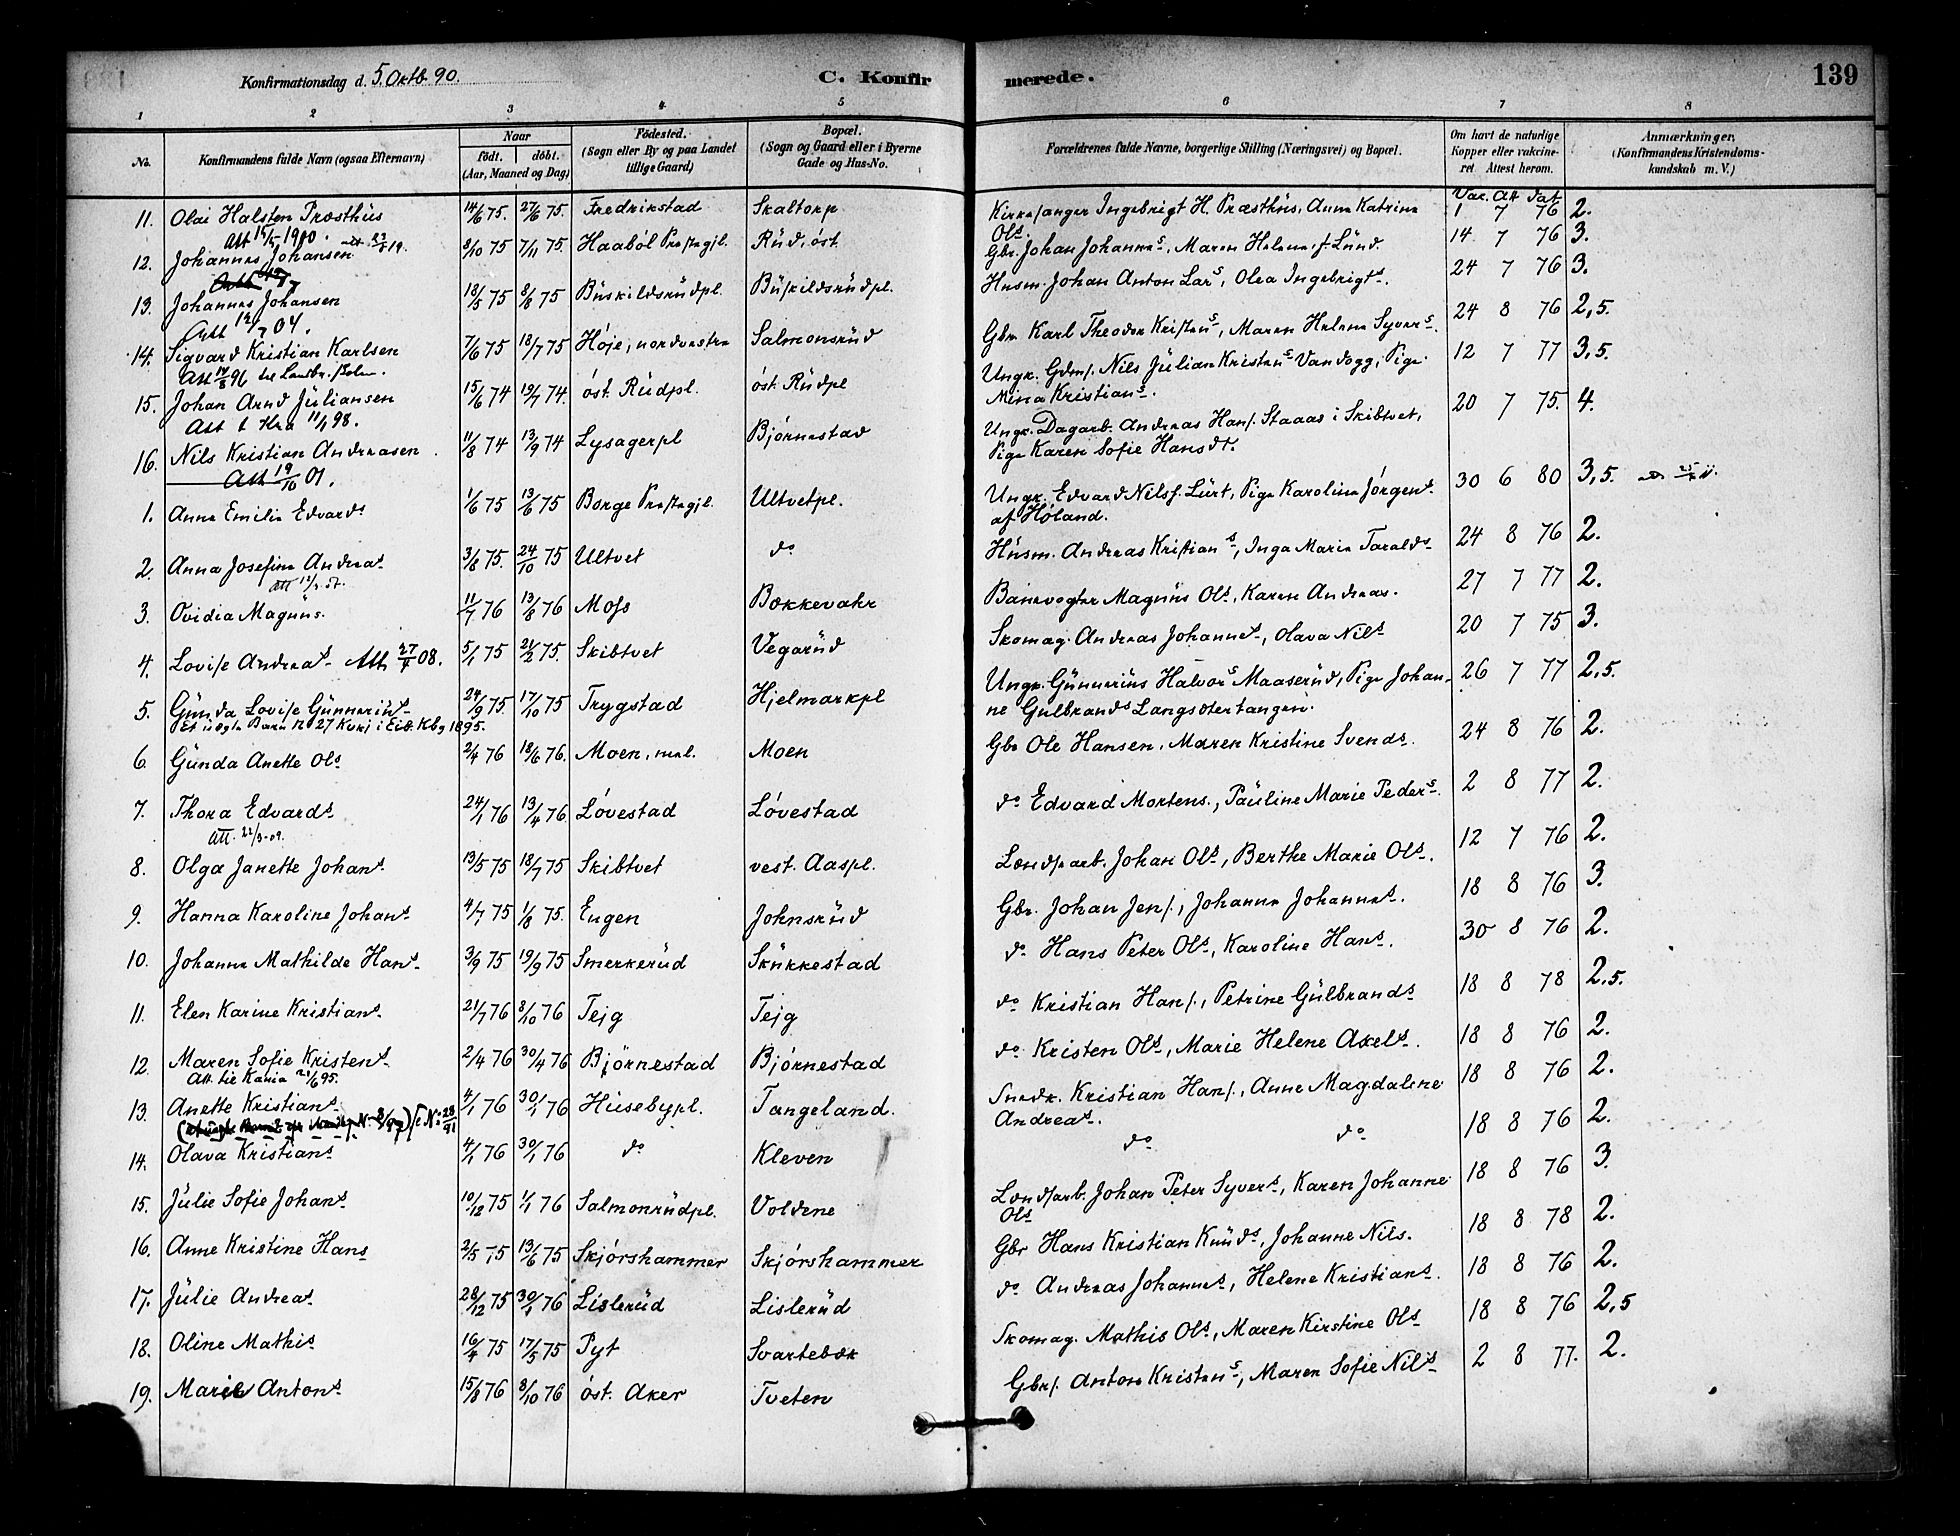 Konfirmationsdag d. 5. Oktb. 90.
C. Konfirmerede.
139
1 2 3 4 5 6 7 8
No.
Konfirmandens fulde Navn (ogsaa Efternavn)
Naar
födt. döbt.
(Aar, Maaned og Dag)
Födested.
(Sogn eller By og paa Landet
tillige Gaard)
Bopæl.
(Sogn og Gaard eller i Byerne
Gade og Hus-No.
Forældrenes fulde Navne, borgerlige Stilling (Næringsvei) og Bopæl.
Om havt de naturlige
Kopper eller vakcine-
ret Attest herom.
Anmærkninger,
(Konfirmandens Kristendoms-
kundskab m. V.)
Vac. Att dat
11. Olai Halsten Prosthüs 14/6 75. 27/6 75. Fredrikstad Skaltorp Kirkesanger Ingebrigt H. Præsthüs, Anna Katrina Ols 1 7 76 2.
Att 15/5 1900.
12. Johannes Johansen 8/10 75 7/11 75. Haaböl Præstegjl. Rüd, öst. Gbr. Johan Johannes, Maren Helene f. Lünd. 14 7 76 3.
13. Johannes Johansen 18/5 75 8/8 75 Büskildsrüdpl. Büskildsrüdpl. Husm. Johan Anton Lars, Olea Ingebrigts. 24 7 76 3.
Att 12/7 04.
14. Sigvard Kristian Karlsen 7/6 75 18/7 75 Höje, nordenstra Salmonsrüd Gbr. Karl Theodor Kristens, Maren Helene Syvers. 24 8 76 2,5.
Att 14/8 96 til Landbr. skolen.
15. Johan Arnd Jüliansen 15/6 74 19/7 74. öst. Rüdpl. öst. Rüdpl Ungk. Gdms. Nils Jülian Kristens Vandogg, Pige Mina Kristians. 12 7 77 3,5.
Att t Kra 11/1 98.
16. Nils Kristian Andreasen 11/8 74 13/9 74 Lysagerpl Bjørnestad Ungk. Dagarb. Andreas Hans. Staaas i Skibtvet, Pige Karen Sofie Hansdt. 20 7 75. 4.
Att 19/10 01.
1. Anna Emilie Edvards 1/6 75 13/6 75 Borge Præstegjl. Ultvetpl. Ungk. Edvard Nilsf. Lürt, Pige Karoline Jörgens. af Höland. 30 6 80 3,5.
2. Anna Josefine Andreas 3/8 75. 24/10 75 Ultvet do Hüsm. Andreas Kristians, Inga Marie Taralds 24 8 76 2.
3. Ovidia Magnüs. 11/7 76 13/8 76 Moss Bokkevahr Banevogter Magnüs Ols, Karen Andreas. 27 7 77 2.
4. Lovise Andreas Att 27/4 08. 5/1 75 21/2 75. Skibtvet Vegarüd Skomag. Andreas Johannes, Olava Nils 20 7 75 3.
5. Günda Lovise Günnerius 24/9 75. 17/10 75 Trygstad Hjelmarkpl Ungk. Günnerius Halvors Maaserüd, Pige Johanne Gulbrands Langsætertangen. 26 7 77 2,5.
6. Günda Anette Ols 2/4 76 18/6 76. Moen, mel. Moen Gbr Ole Hansen, Maren Kristine Svends. 24 8 76 2.
7. Thora Edvards 24/1 76 13/4 76 Lövestad Lövestad do Edvard Mortens., Pauline Marie Peders. 2 8 77 2.
Att. 22/3-09.
8. Olga Janette Johans 13/5 75 18/7 75 Skibtvet vest. Aaspl. Lændsarb. Johan Ols, Berthe Marie Ols. 12 7 76 2.
9. Hanna Karoline Johans 4/7 75 1/8 75. Eugen Johnsrüd Gbr. Johan Jens., Johanne Johannes. 18 8 76 3.
10. Johanna Mathilde Hans 3/9 75 19/9 75 Smerkerüd Skükkestad do Hans Peter Ols, Karoline Hans. 30 8 76 2.
11. Elen Karine Kristians 21/7 76 8/10 76 Tejg Tejg do Kristian Hans., Petrine Gülbrands 18 8 78 2,5.
12. Maren Sofie Kristens 2/4 76 30/4 76 Björnestad Björnestad do Kristen Ols, Marie Helene Axels. 18 8 76 2.
13. Anette Kristians 4/1 76 30/1 76 Hüsebypl. Tangeland. Snedk. Kristian Hans., Anne Magdalene Andreas. 18 8 76 2.
14. Olava Kristians 4/1 76 30/1 76 do Kleven do do 18 8 76 2.
15. Jülie Sofie Johans 10/12 75 1/1 76 Salmonrüdpl. Voldene Lændsarb. Johan Peter Syvers, Karen Johanne Ols 18 8 76 3.
16. Anne Kristine Hans 2/5 75 13/6 75 Skjörshammer Skjörshammer Gbr Hans Kristian Knüds, Johanne Nils. 18 8 78 2.
17. Jülie Andreas 28/12 75 30/1 76 Lislerüd Lislerüd do Andreas Johannes, Helene Kristians. 18 8 76 2.
18. Oline Mathis 16/4 75 17/5 75 Pyt Svartebæk Skomag. Mathis Ols, Maren Kirstine Ols 18 8 76 2,5
19. Marie Antons 15/8 76 8/10 76 öst. Aker Tveten Gbrs. Anton Kristens, Maren Sofie Nils 2 8 77. 2.